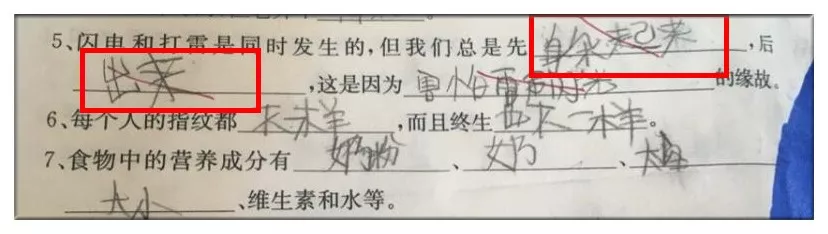 5、闪电和打雷是同时发生的,但我们总是先 躲起来 ,后
出来 ,这是因为 害怕雷 的缘故。
6、每个人的指纹都 不样 ,而且终生 也不一样 。
7、食物中的营养成分有 奶粉 、 奶 、
大小 、维生素和水等。